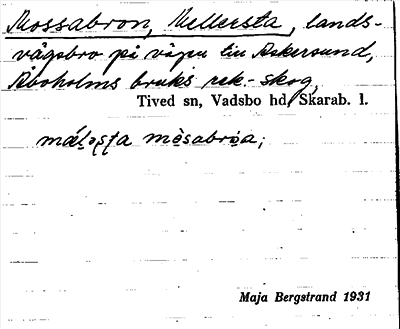 Mossabron, Mellersta, lands-
vägsbro på vägen till Askersund,
Åboholms bruks rek.-skog,
Tived sn, Vadsbo hd, Skarab. l.
mä̀lǝṣṭa mósabrǝa;
Maja Bergstrand 1931